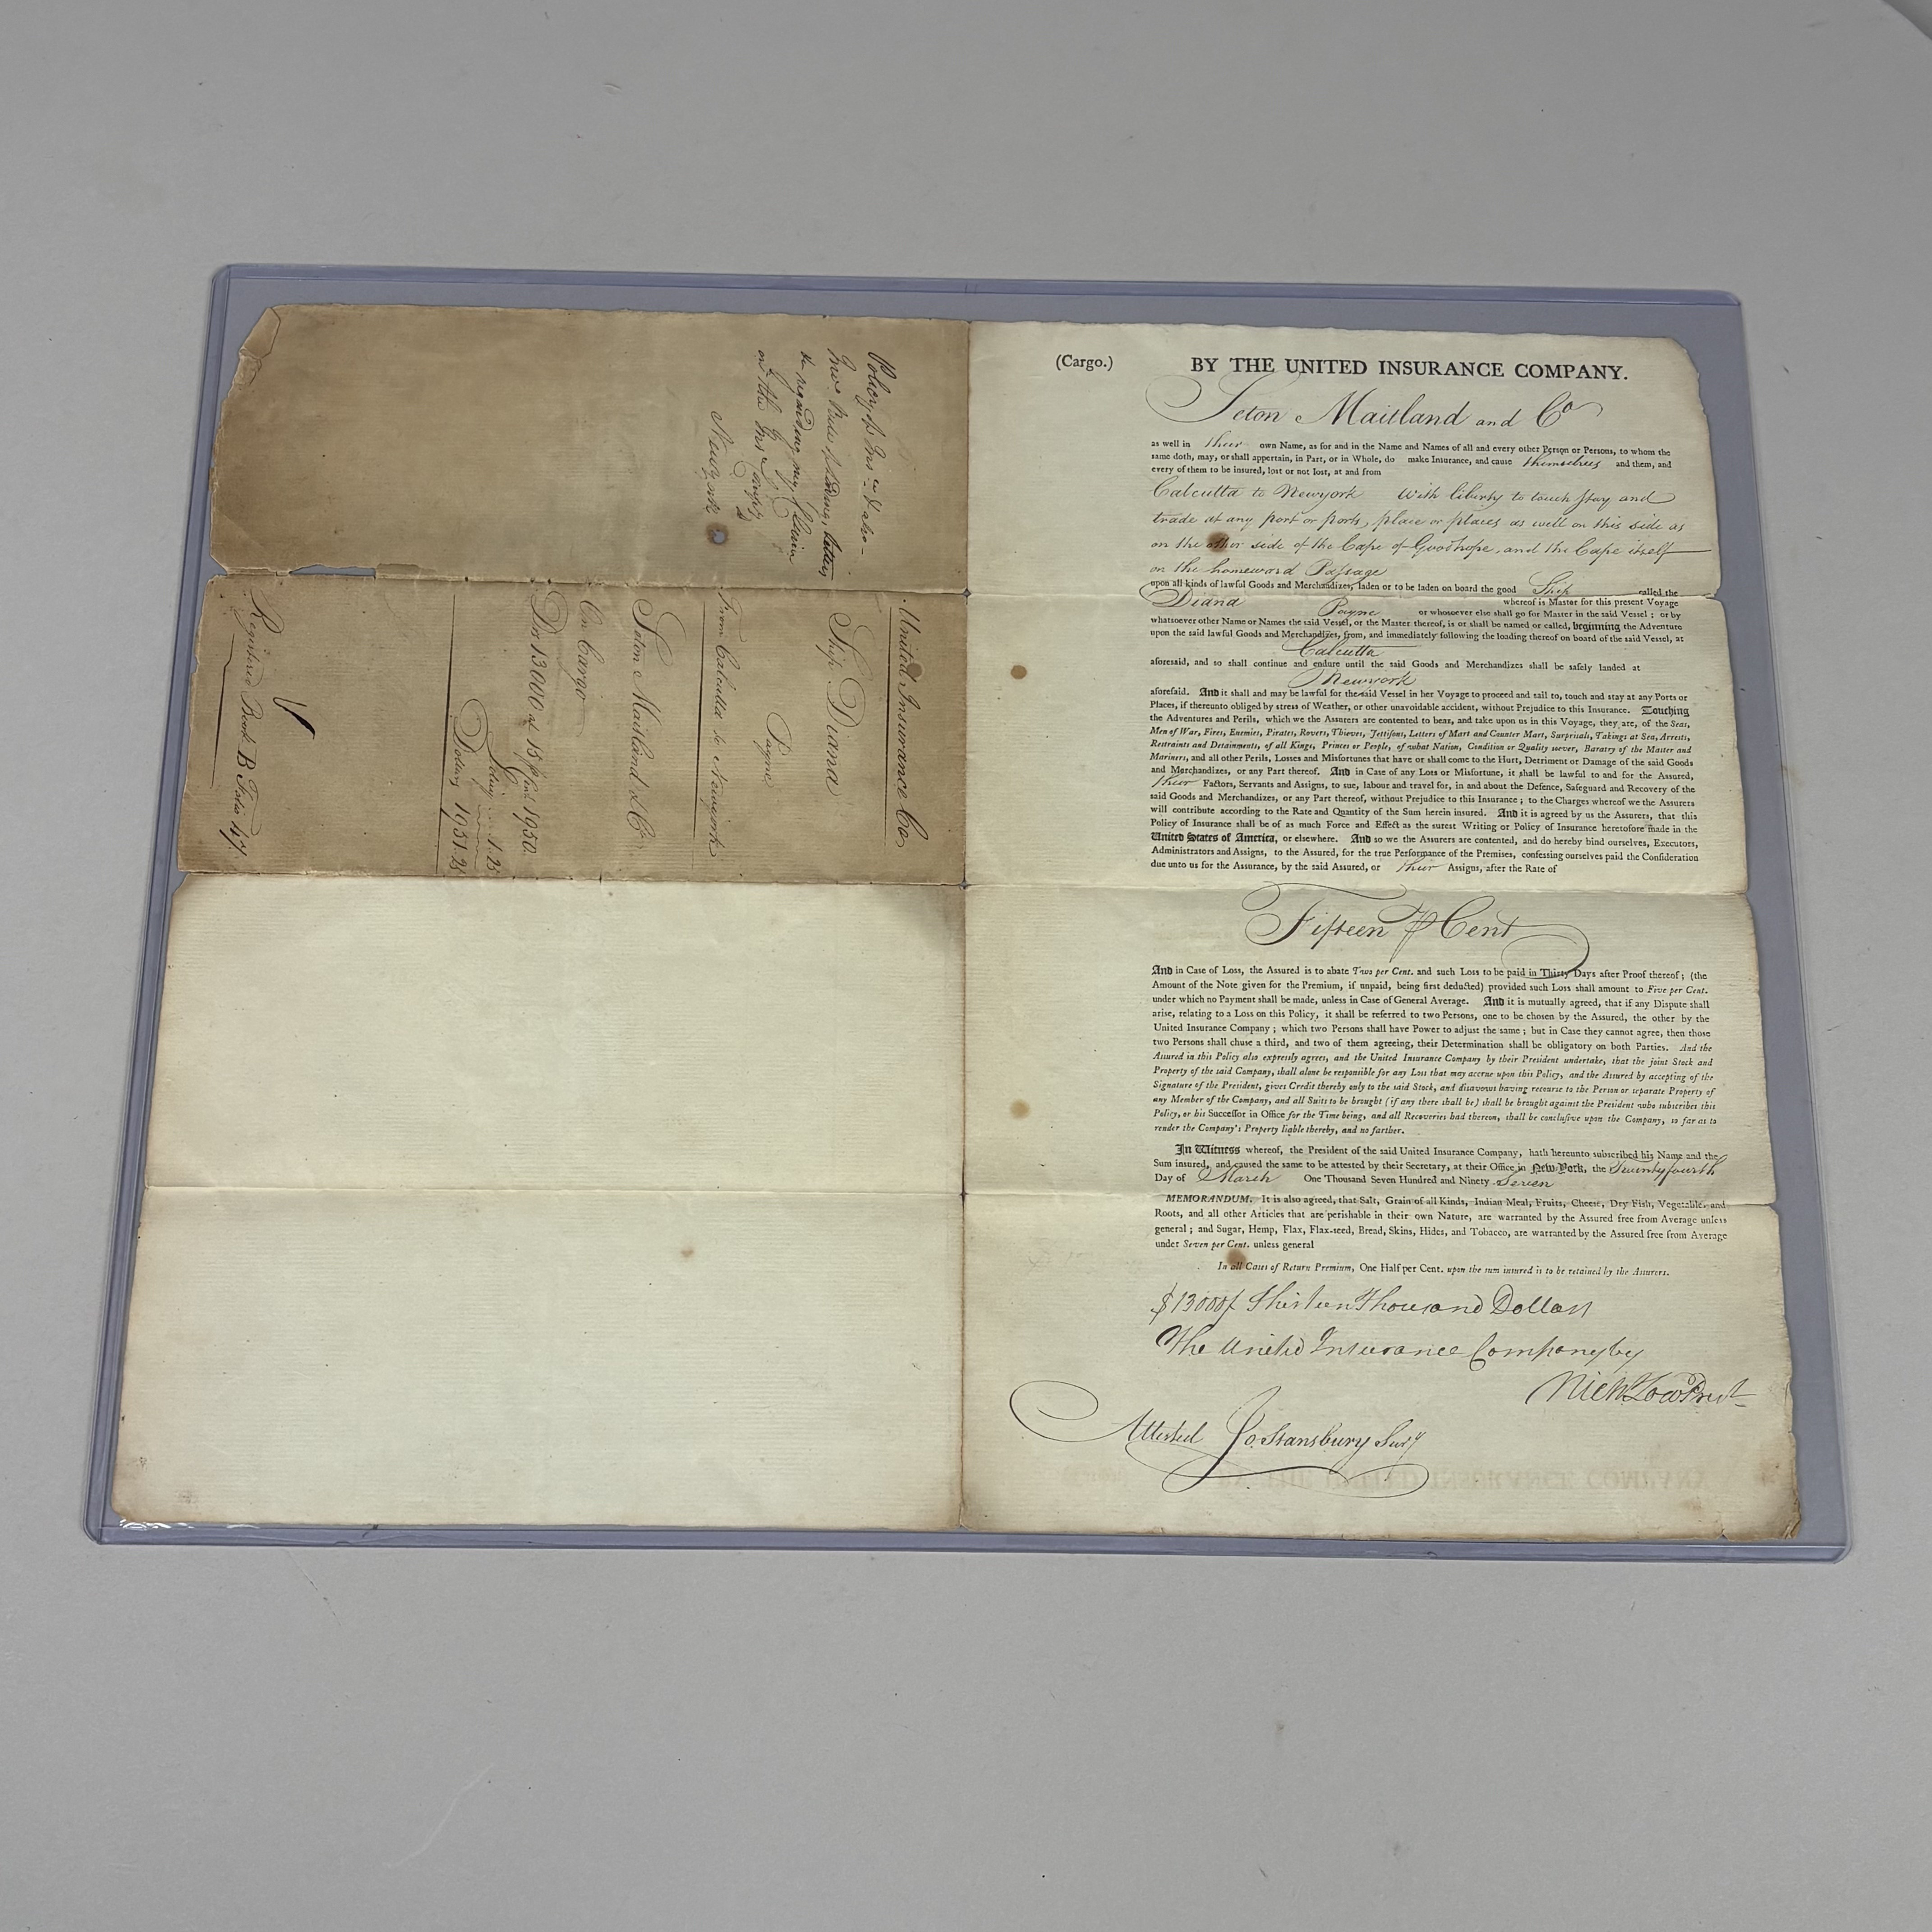 (Cargo.) BY THE UNITED INSURANCE COMPANY.
Seton Maitland and Co
as well in their own Name, as for and in the Name and Names of all and every other Person or Persons, to whom the
same doth, may, or shall appertain, in Part, or in Whole, do make Insurance, and cause themselves and them, and
every of them to be insured, lost or not lost, at and from
Calcutta to Newyork With liberty to touch stay and
trade at any port or ports, place or places as well on this side as
on the other side of the Cape of Goodhope, and the Cape itself
on the homeward Passage
upon all kinds of lawful Goods and Merchandizes, laden or to be laden on board the good Ship called the
Diana Payne whereof is Master for this present Voyage
or whosoever else shall go for Master in the said Vessel; or by
whatsoever other Name or Names the said Vessel, or the Master thereof, is or shall be named or called, beginning the Adventure
upon the said lawful Goods and Merchandizes, from, and immediately following the loading thereof on board of the said Vessel, at
Calcutta
aforesaid, and so shall continue and endure until the said Goods and Merchandizes shall be safely landed at
Newyork
aforesaid. And it shall and may be lawful for the said Vessel in her Voyage to proceed and sail to, touch and stay at any Ports or
Places, if thereunto obliged by stress of Weather, or other unavoidable accident, without Prejudice to this Insurance. Touching
the Adventures and Perils, which we the Assurers are contented to bear, and take upon us in this Voyage, they are, of the Seas,
Men of War, Fires, Enemies, Pirates, Rovers, Thieves, Jettisons, Letters of Mart and Counter Mart, Surprisals, Takings at Sea, Arrests,
Restraints and Detainments, of all Kings, Princes or People, of what Nation, Condition or Quality soever, Baratry of the Master and
Mariners, and all other Perils, Losses and Misfortunes that have or shall come to the Hurt, Detriment or Damage of the said Goods
and Merchandizes, or any Part thereof. And in Case of any Loss or Misfortune, it shall be lawful to and for the Assured,
their Factors, Servants and Assigns, to sue, labour and travel for, in and about the Defence, Safeguard and Recovery of the
said Goods and Merchandizes, or any Part thereof, without Prejudice to this Insurance; to the Charges whereof we the Assurers
will contribute according to the Rate and Quantity of the Sum herein insured. And it is agreed by us the Assurers, that this
Policy of Insurance shall be of as much Force and Effect as the surest Writing or Policy of Insurance heretofore made in the
United States of America, or elsewhere. And so we the Assurers are contented, and do hereby bind ourselves, Executors,
Administrators and Assigns, to the Assured, for the true Performance of the Premises, confessing ourselves paid the Consideration
due unto us for the Assurance, by the said Assured, or their Assigns, after the Rate of
Fifteen P Cent
And in Case of Loss, the Assured is to abate Two per Cent. and such Loss to be paid in Thirty Days after Proof thereof; (the
Amount of the Note given for the Premium, if unpaid, being first deducted) provided such Loss shall amount to Five per Cent.
under which no Payment shall be made, unless in Case of General Average. And it is mutually agreed, that if any Dispute shall
arise, relating to a Loss on this Policy, it shall be referred to two Persons, one to be chosen by the Assured, the other by the
United Insurance Company; which two Persons shall have Power to adjust the same; but in Case they cannot agree, then those
two Persons shall chuse a third, and two of them agreeing, their Determination shall be obligatory on both Parties. And the
Assured in this Policy also expressly agrees, and the United Insurance Company by their President undertake, that the joint Stock and
Property of the said Company, shall alone be responsible for any Loss that may accrue upon this Policy, and the Assured by accepting of the
Signature of the President, gives Credit thereby only to the said Stock, and disavows having recourse to the Person or separate Property of
any Member of the Company, and all Suits to be brought (if any there shall be) shall be brought against the President who subscribes this
Policy, or his Successor in Office for the Time being, and all Recoveries had thereon, shall be conclusive upon the Company, so far as to
render the Company's Property liable thereby, and no farther.
In Witness whereof, the President of the said United Insurance Company, hath hereunto subscribed his Name and the
Sum insured, and caused the same to be attested by their Secretary, at their Office in New-York, the Twentyfourth
Day of March One Thousand Seven Hundred and Ninety Seven
MEMORANDUM. It is also agreed, that Salt, Grain of all Kinds, Indian Meal, Fruits, Cheese, Dry Fish, Vegetables and
Roots, and all other Articles that are perishable in their own Nature, are warranted by the Assured free from Average unless
general; and Sugar, Hemp, Flax, Flax-seed, Bread, Skins, Hides, and Tobacco, are warranted by the Assured free from Average
under Seven per Cent. unless general
In all Cases of Return Premium, One Half per Cent. upon the sum insured is to be retained by the Assurers.
$13000/ Thirteen Thousand Dollars
The United Insurance Company by
Nich Low Prest
Attested Jo. Stansbury Secy
United Insurance Co
Ship Diana
Payne
From Calcutta to Newyork
Seton Maitland & Co
On Cargo
Drs 13000 at 15 P Cent 1950.
Policy 1.25
Dollars 1951.25
Registered Book B Folio
Policy of
letters
regarding my Claim
on the Cargo
Newyork